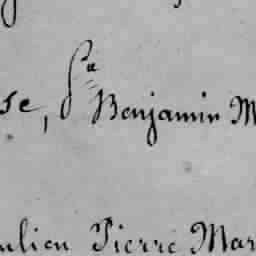 se, Sr Benjamin M
ulien Pierre Mar